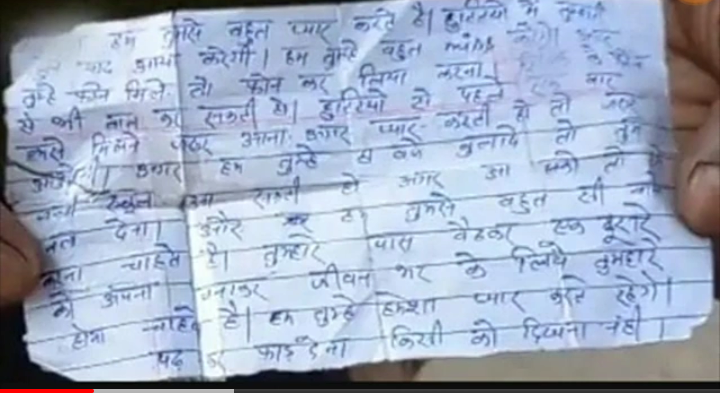 हम तुमसे बहुत प्यार करते है। छुटिरियो में तुम्हारी
याद आया करेगी। हम तुम्हे बहुत miss करेगी अगर
तुम्हे फोन मिले तो फोन कर लिया करना।
से भी बात कर सकती हो। छुटिरियो से पहले एक बार
हमसे मिलने जरूर आना अगर प्यार करती हो तो जरूर
अगर हम तुम्हे बुलादे तो तुम
स्कूल आ सकती हो अगर आ सको तो
बता देना। और हम तुमसे बहुत सी बाते
करना चाहते है। तुम्हारे पास बैठकर एक दूसरे
को अपना बनाकर जीवन भर के लिये तुमहारे
होना चाहते है। हम तुम्हे हमेशा प्यार करते रहेंगे।
पढ़ कर फाड़ देना किसी को दिखाना नही।